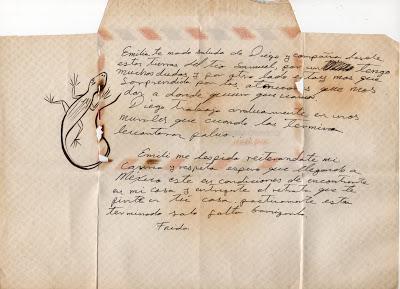 Emilia te mado saludo de Diego y compañia desde
estas tierras del tio Samuel, por un tengo
muchos dudas y por otro lado estoy mas que
Sorprendida por las atenciones que nos
dan a donde quiera que vamos.
Diego trabaja arduamente en unos
murales que cuando los termina
levantaron polvo...
Emili me despido reiterandote mi
Cariño y respeto espero que llegando a
México este en condiciones de encontrarte
en mi casa y entregarte el retrato que te
pinte en tu casa. practicamente esta
terminado solo falta barnizarlo
Frida.